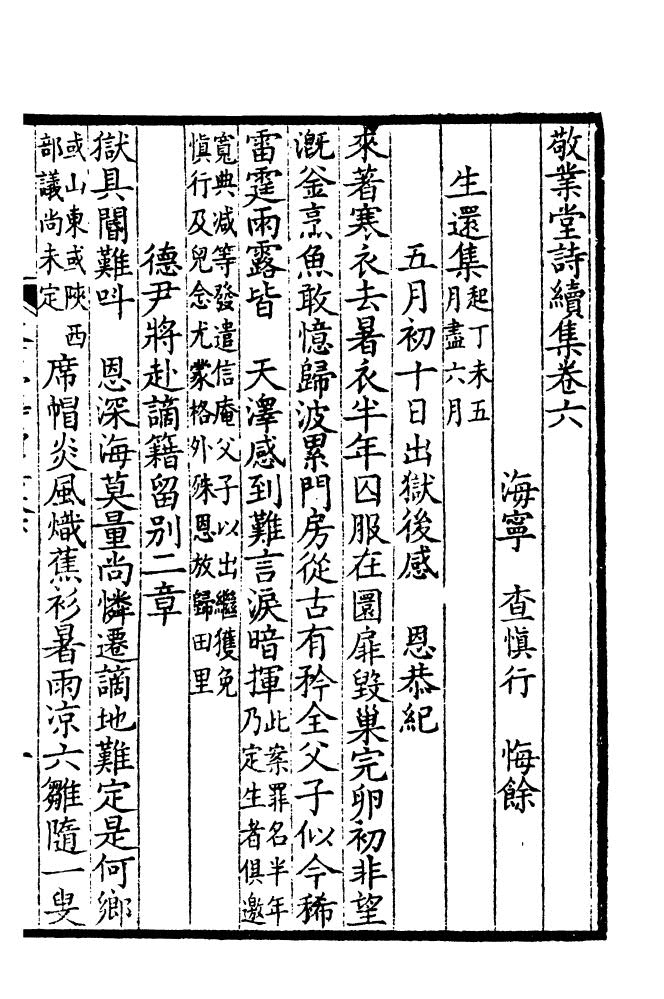 敬業堂詩續集卷六
海寧　查愼行　悔餘
生還集起丁未五月盡六月
五月初十日出獄後感　恩恭紀
來著寒衣去暑衣半年囚服在圜扉毀巢完卵初非望
漑釜烹魚敢憶歸波累門房從古有矜全父子似今稀
雷霆雨露皆　天澤感到難言淚暗揮此案罪名半年乃定生者俱邀
寬典減等發遣信庵父子以出繼獲免愼行及兒念尤蒙格外殊恩放歸田里
德尹將赴謫籍留別二章
獄具閽難呌　恩深海莫量尚憐遷謫地難定是何鄉
或山東或陜西部議尚未定　席帽炎風熾蕉衫暑雨凉六雛隨一叟